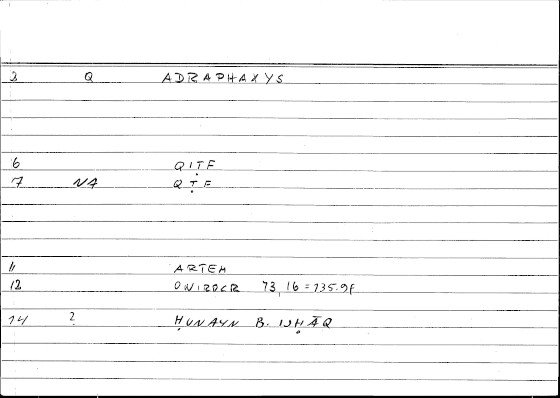 2 Q ADRAPHAXYS
6 QIṬF
7 NA QṬF
11 ARTEM
12 ONIROCR 73,16 = 135.9f
14 2 ḤUNAYN B. ISḤĀQ